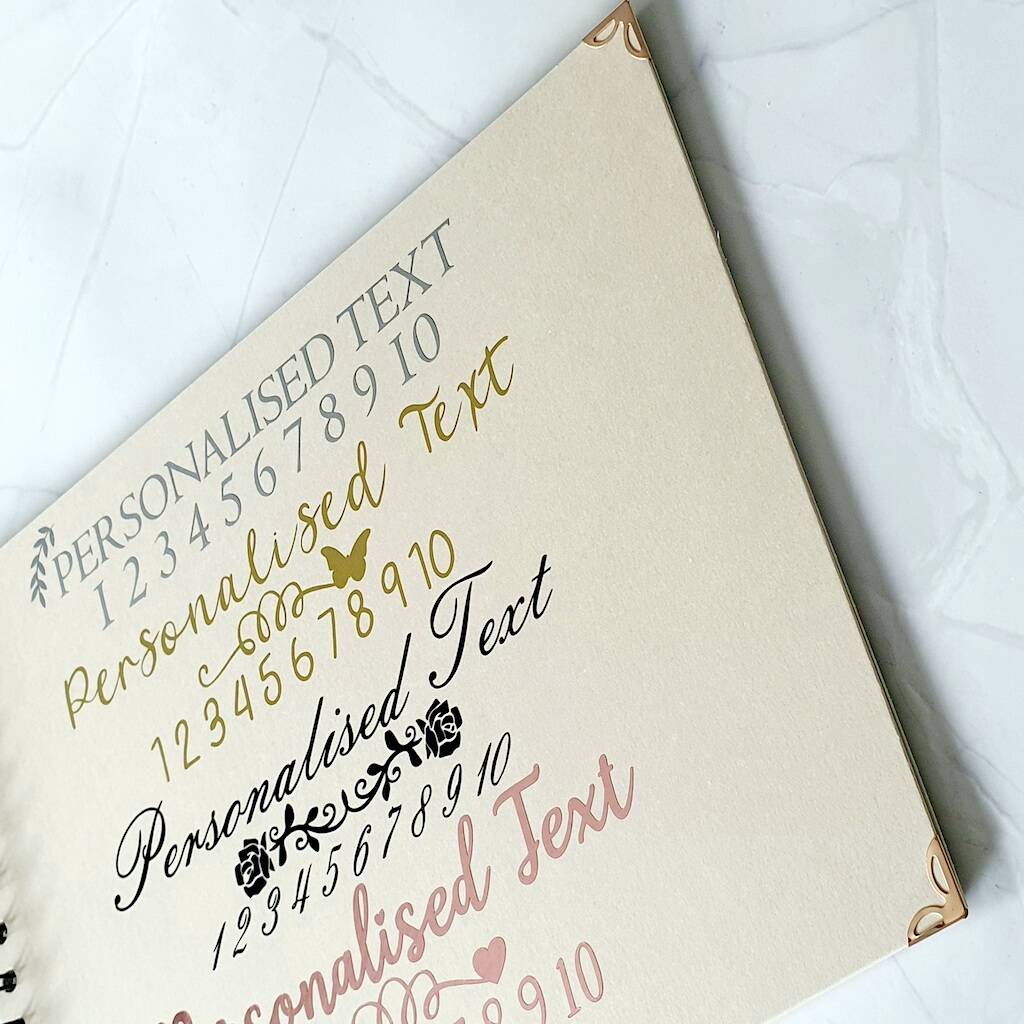 PERSONALISED TEXT
1 2 3 4 5 6 7 8 9 10
Personalised Text
1 2 3 4 5 6 7 8 9 10
Personalised Text
1 2 3 4 5 6 7 8 9 10
Personalised Text
8 9 10